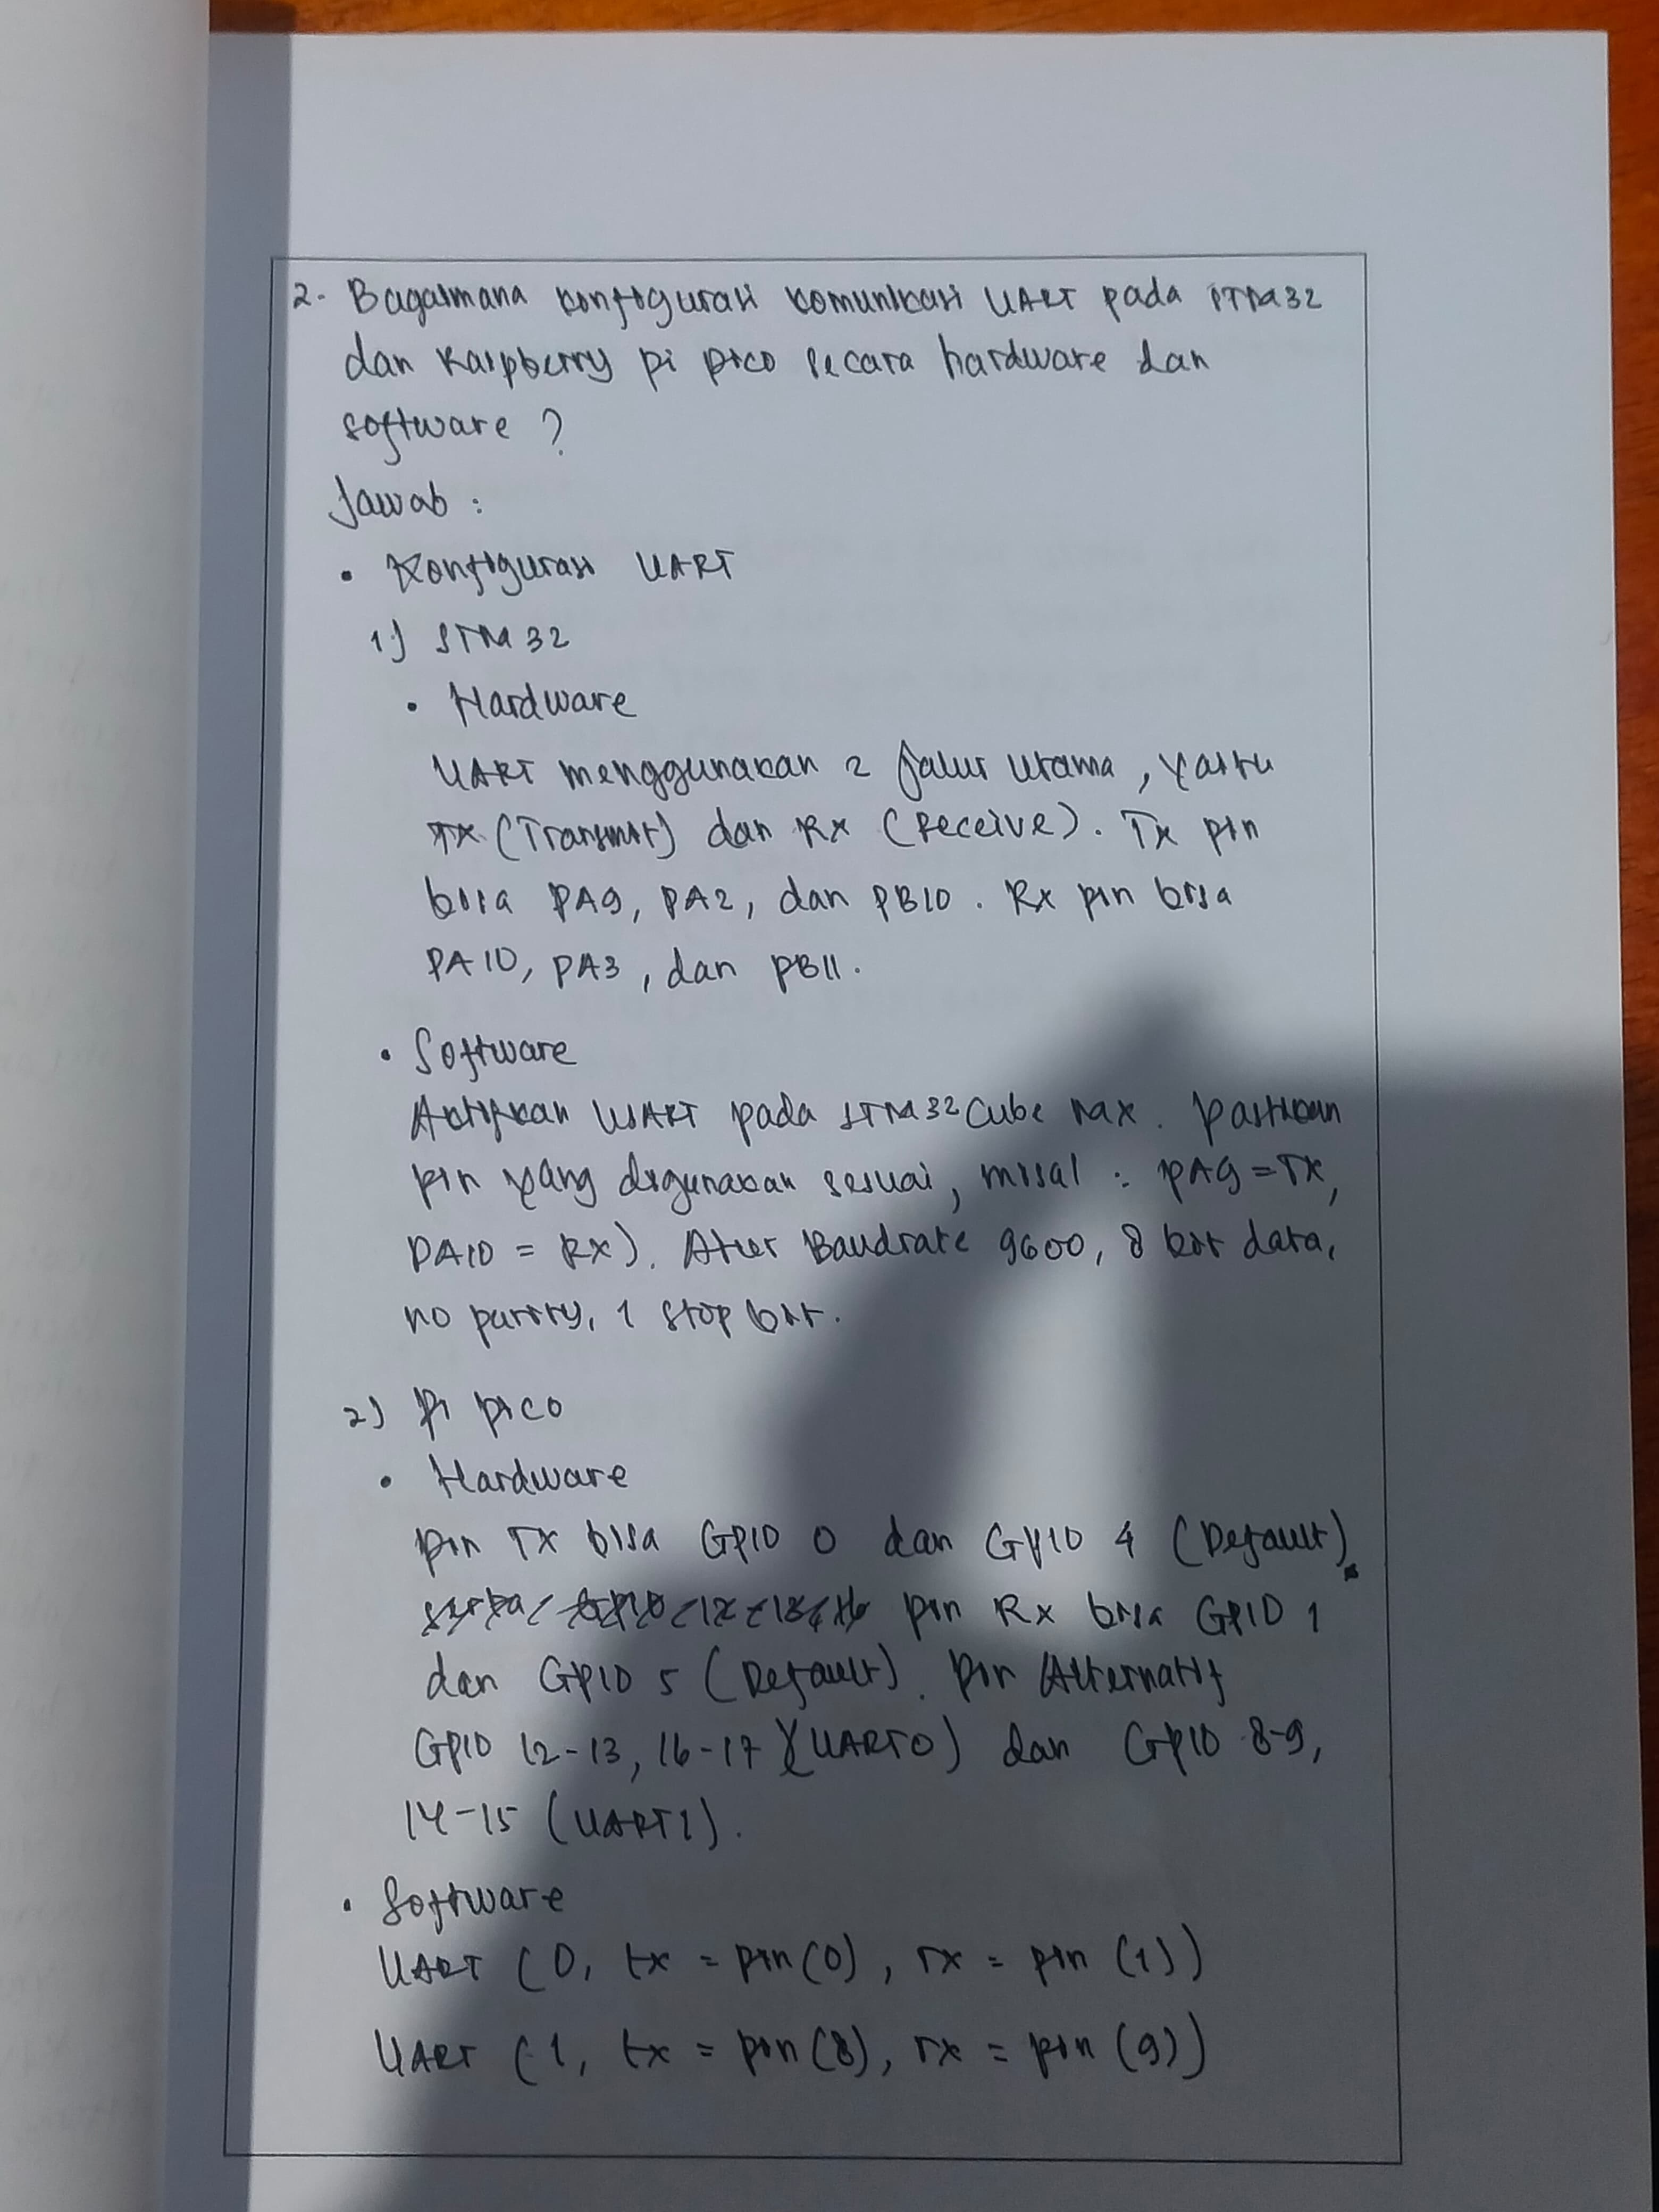 2. Bagaimana konfigurasi komunikasi UART pada STM32
dan Raspberry pi pico secara hardware dan
software ?
Jawab :
• Konfigurasi UART
1) STM 32
• Hardware
UART menggunakan 2 jalur utama, yaitu
TX (Transmit) dan RX (Receive). Tx pin
bisa PA9, PA2, dan PB10. Rx pin bisa
PA10, PA3, dan PB11.
• Software
Aktifkan UART pada STM32 Cube Max. Pastikan
pin yang digunakan sesuai, misal : PA9 = TX,
PA10 = RX). Atur Baudrate 9600, 8 bit data,
no parity, 1 stop bit.
2) Pi pico
• Hardware
Pin TX bisa GPIO 0 dan GPIO 4 (Default).
pin Rx bisa GPIO 1
dan GPIO 5 (Default). Pin Alternatif
GPIO 12-13, 16-17 (UART0) dan GPIO 8-9,
14-15 (UART1).
• Software
UART (0, tx = pin(0), rx = pin (1))
UART (1, tx = pin(8), rx = pin (9))